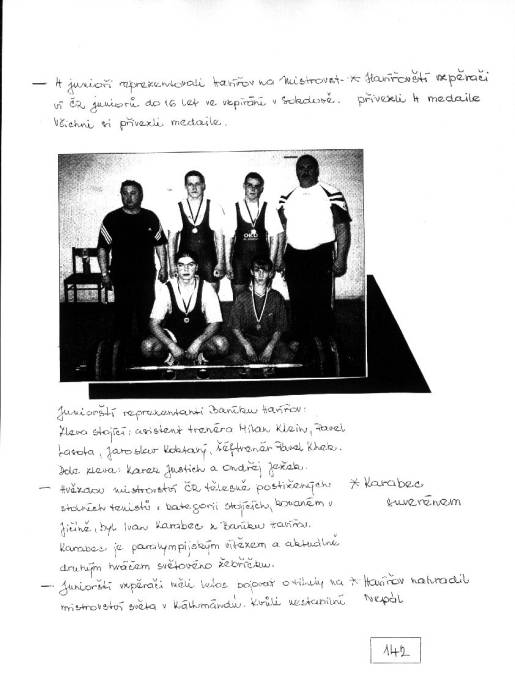 — 4 junioři reprezentovali Havířov na Mistrovst- * Havířovští vzpěrači
ví ČR juniorů do 16 let ve vzpírání v Sokolově. přivezli 4 medaile
Všichni si přivezli medaile.
OKD
Juniorští reprezentanti Baníku Havířov:
Zleva stojící: asistent trenéra Milan Klein, Pavel
Lasota, Jaroslav Koktavý, šéftrenér Pavel Khek.
Dole zleva: Karel Justich a Ondřej Ježek.
— Hvězdou mistrovství ČR tělesně postižených * Karabec
stolních tenistů v kategorii stojících, konaném v suverénem
Jičíně, byl Ivan Karabec z Baníku Havířov.
Karabec je paralympijským vítězem a aktuálně
druhým hráčem světového žebříčku.
— Juniorští vzpěrači měli letos bojovat o tituly na * Havířov nahradil
mistrovství světa v Káthmándú. Kvůli nestabilní Nepál
142